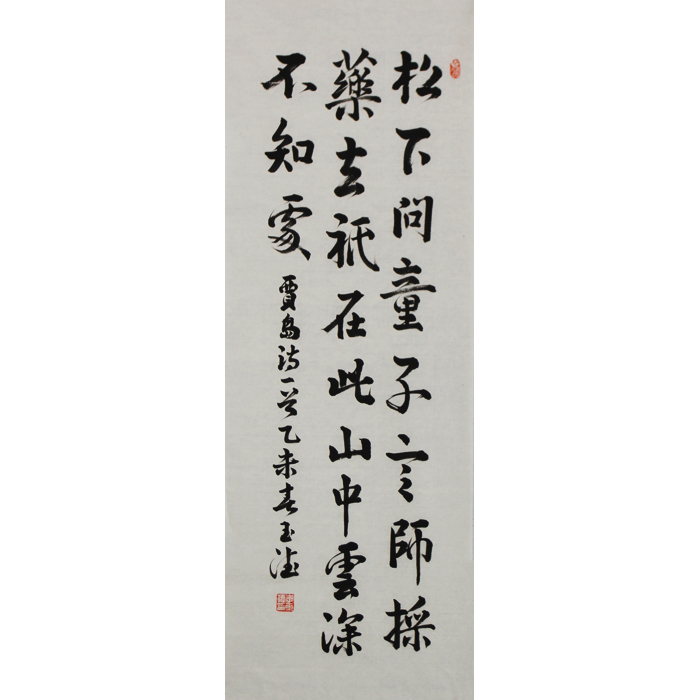 松下問童子言師採
藥去祇在此山中雲深
不知處
賈島詩一首乙未春玉